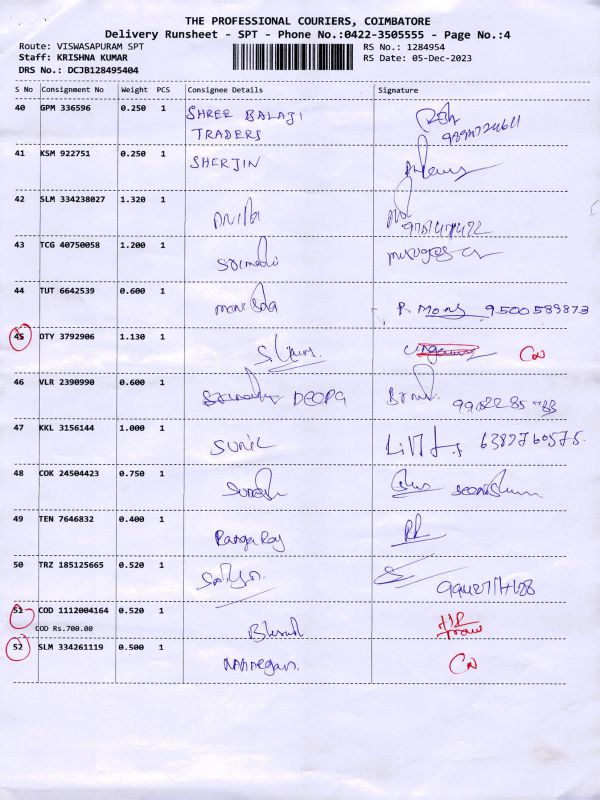 THE PROFESSIONAL COURIERS, COIMBATORE
Delivery Runsheet - SPT - Phone No.:0422-3505555 - Page No.:4
Route: VISWASAPURAM SPT
RS No.: 1284954
Staff: KRISHNA KUMAR
RS Date: 05-Dec-2023
DRS No.: DCJB128495404
S No Consignment No Weight PCS Consignee Details Signature
40 GPM 336596 0.250 1 SHREE BALAJI
TRADERS
41 KSM 922751 0.250 1 SHERJIN
42 SLM 334238027 1.320 1 Anitha
43 TCG 40750058 1.200 1
44 TUT 6642539 0.600 1 9500589873
45 DTY 3792906 1.130 1 CN
46 VLR 2390990 0.600 1 DEOPA
47 KKL 3156144 1.000 1 SUNIL 6382760575
48 COK 24504423 0.750 1 Suresh
49 TEN 7646832 0.400 1 RangaRaj
50 TRZ 185125665 0.520 1
51 COD 1112004164 0.520 1
COD Rs.700.00
52 SLM 334261119 0.500 1 CN